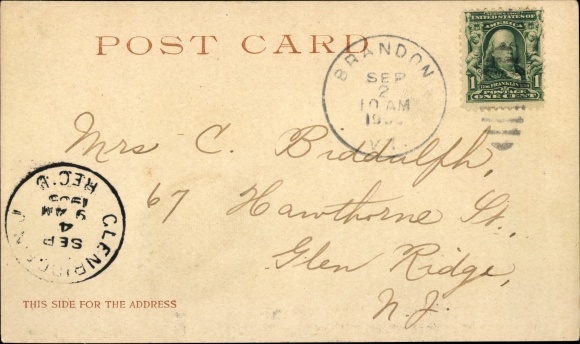 POST CARD
BRANDON
SEP
2
10 AM
VT.
UNITED STATES OF
AMERICA
1 1
POSTAGE
ONE CENT
Mrs C. Biddulph,
67 Hawthorne St.,
Glen Ridge,
N.J.
SEP
4
9 AM
1905
REC'D.
THIS SIDE FOR THE ADDRESS